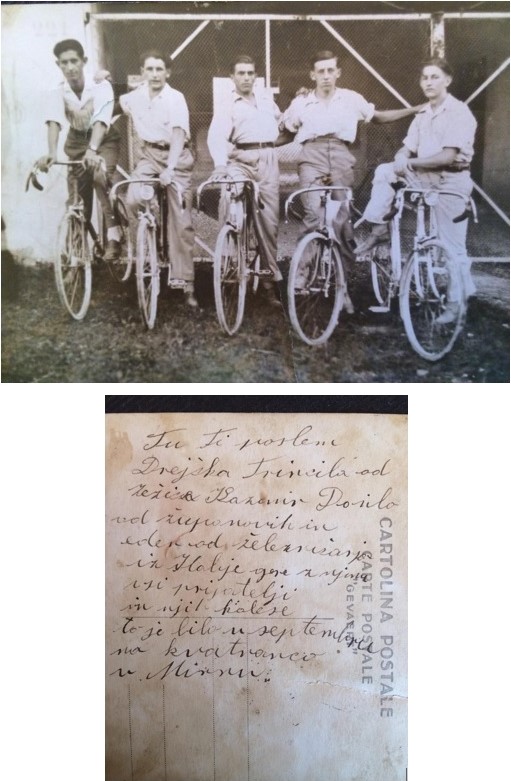 Tu Ti poslem
Drejška Trincila od
Kazimir Dorilo
od županovih in
eden od železničarje
iz Italije gre z njimi
vsi prijatelji
in njih kolese
to je bilo u septembru
na kvatranco
u Mirnu.
CARTOLINA POSTALE
CARTE POSTALE
"GEVAERT"